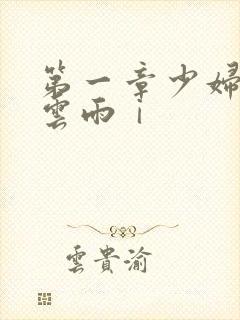 第一章少婦
雲雨｜
雲貴渝